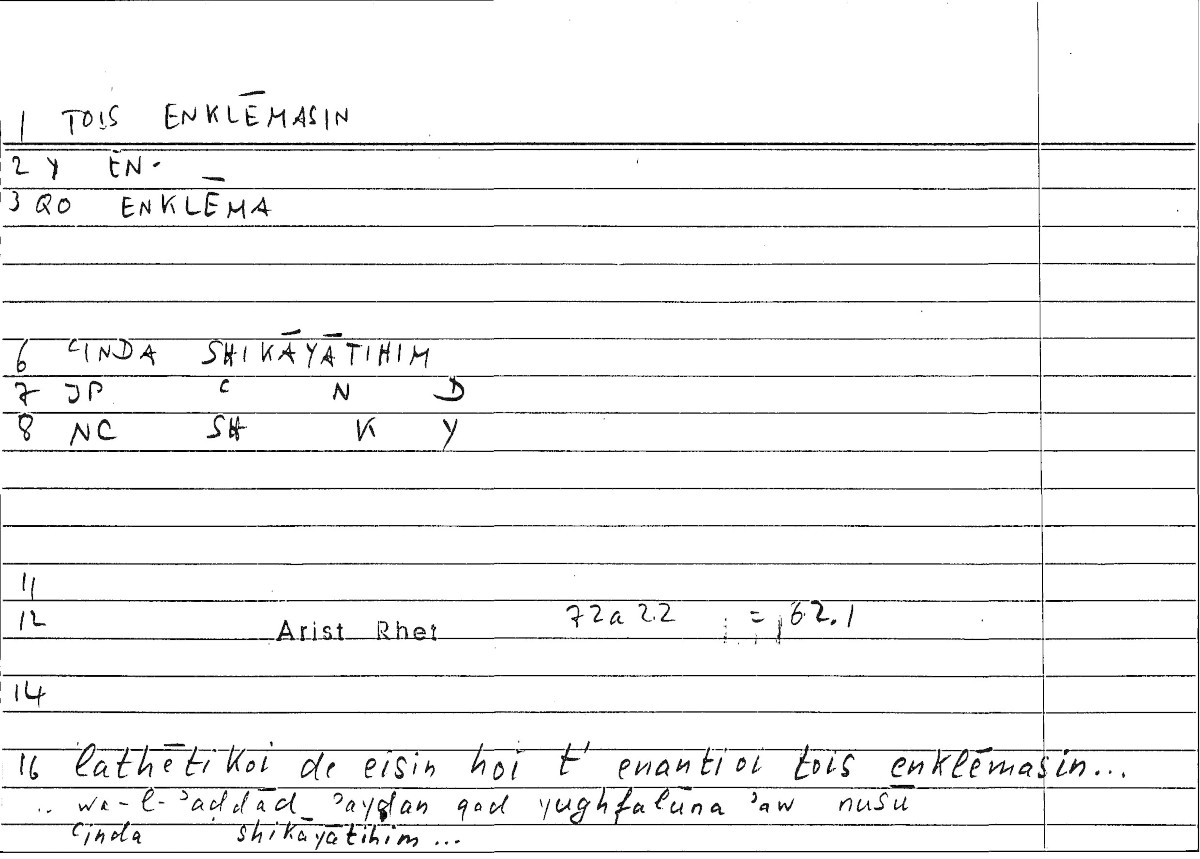 1 TOIS ENKLĒMASIN
2 Y EN-
3 QO ENKLĒMA
6 ʿINDA SHIKĀYĀTIHIM
7 JP ʿ N D
8 NC SH K Y
11
12 Arist Rhet 72a22 = 62.1
14
16 lathētikoi de eisin hoi t' enantioi tois enklēmasin...
.. wa-l-ʾaḍdād ʾayḍan qad yughfalūna ʾaw nusū
ʿinda shikāyātihim...